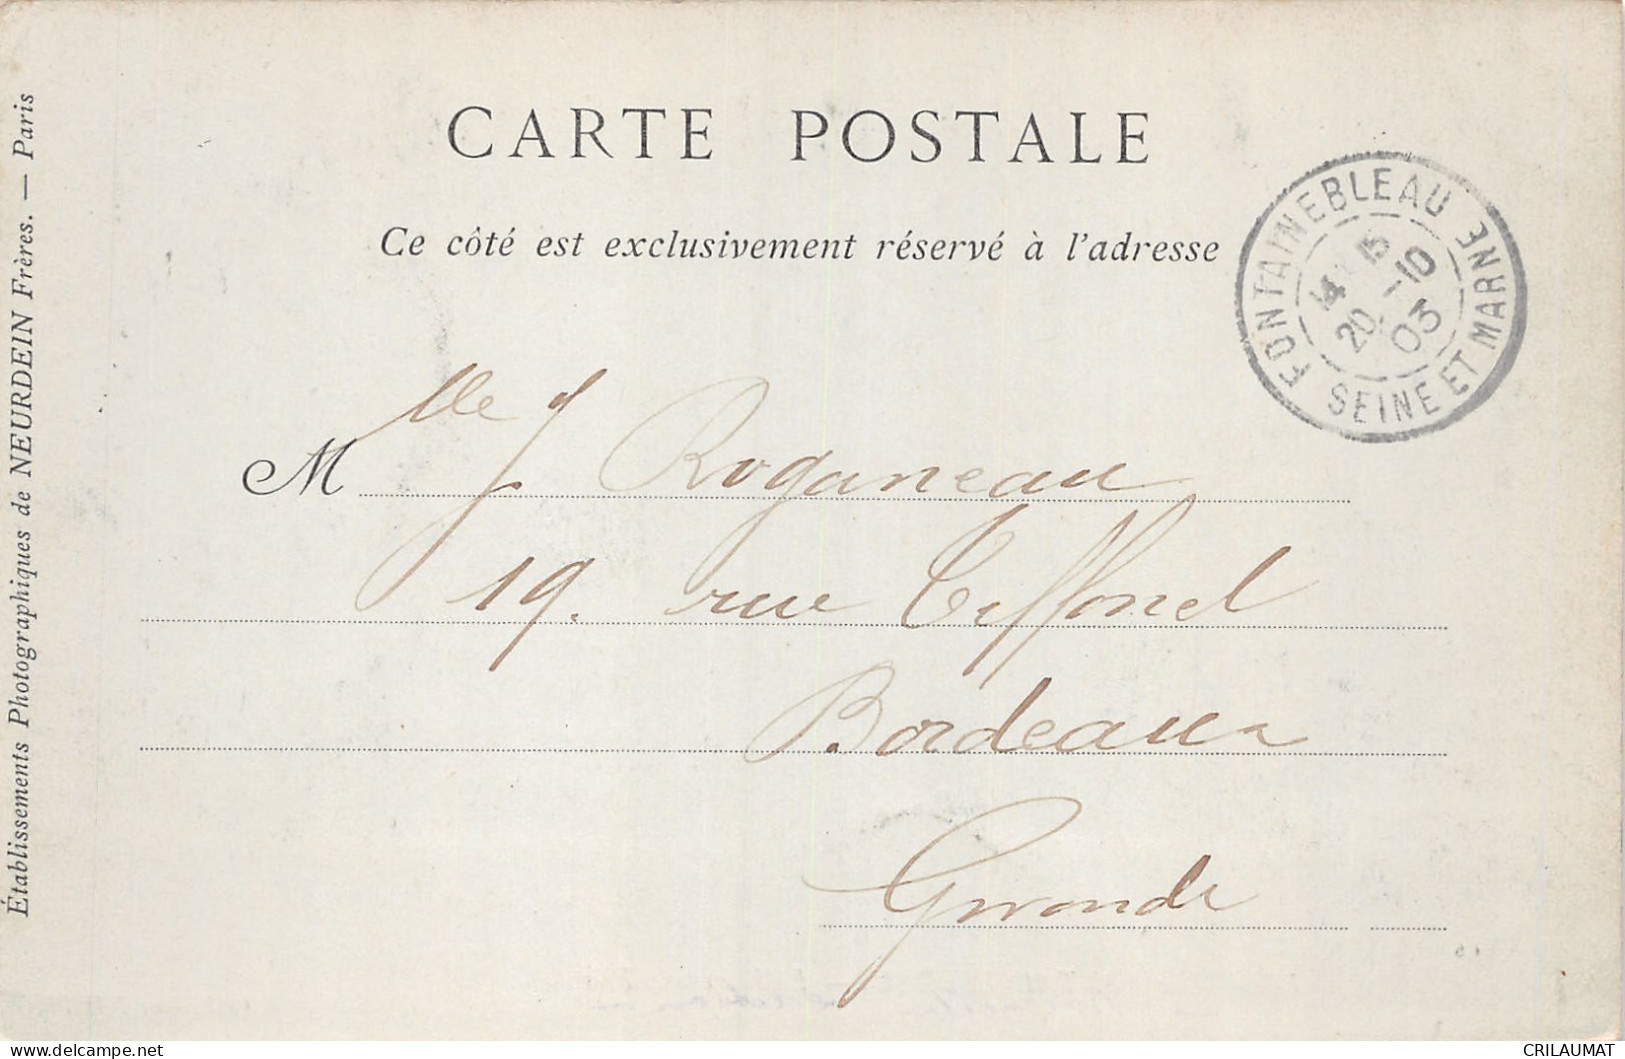 CARTE POSTALE
Ce côté est exclusivement réservé à l'adresse
FONTAINEBLEAU
SEINE ET MARNE
14 15
20 -10
03
Mlle J Roganeau
19. rue Tiffonel
Bordeaux
Gironde
Établissements Photographiques de NEURDEIN Frères. — Paris
CRILAUMAT